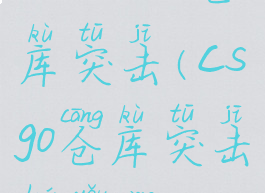 kù tū jī
库突击(CS
cāng kù tū jī
go仓库突击